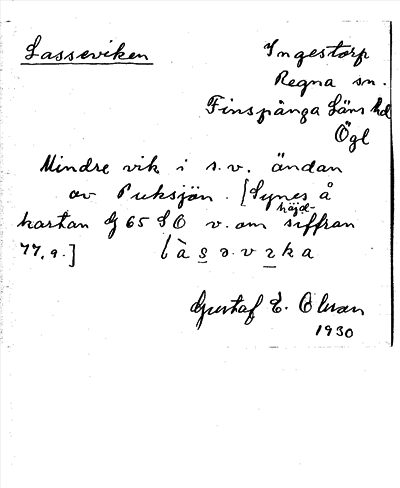 Lasseviken
Ingestorp
Regna sn.
Finspånga Läns hd
Ögl
Mindre vik i s.v. ändan
av Puksjön. [Synes å
kartan G 65 SO v. om höjd-siffran
77,9.]
Gustaf E. Olsson
1930